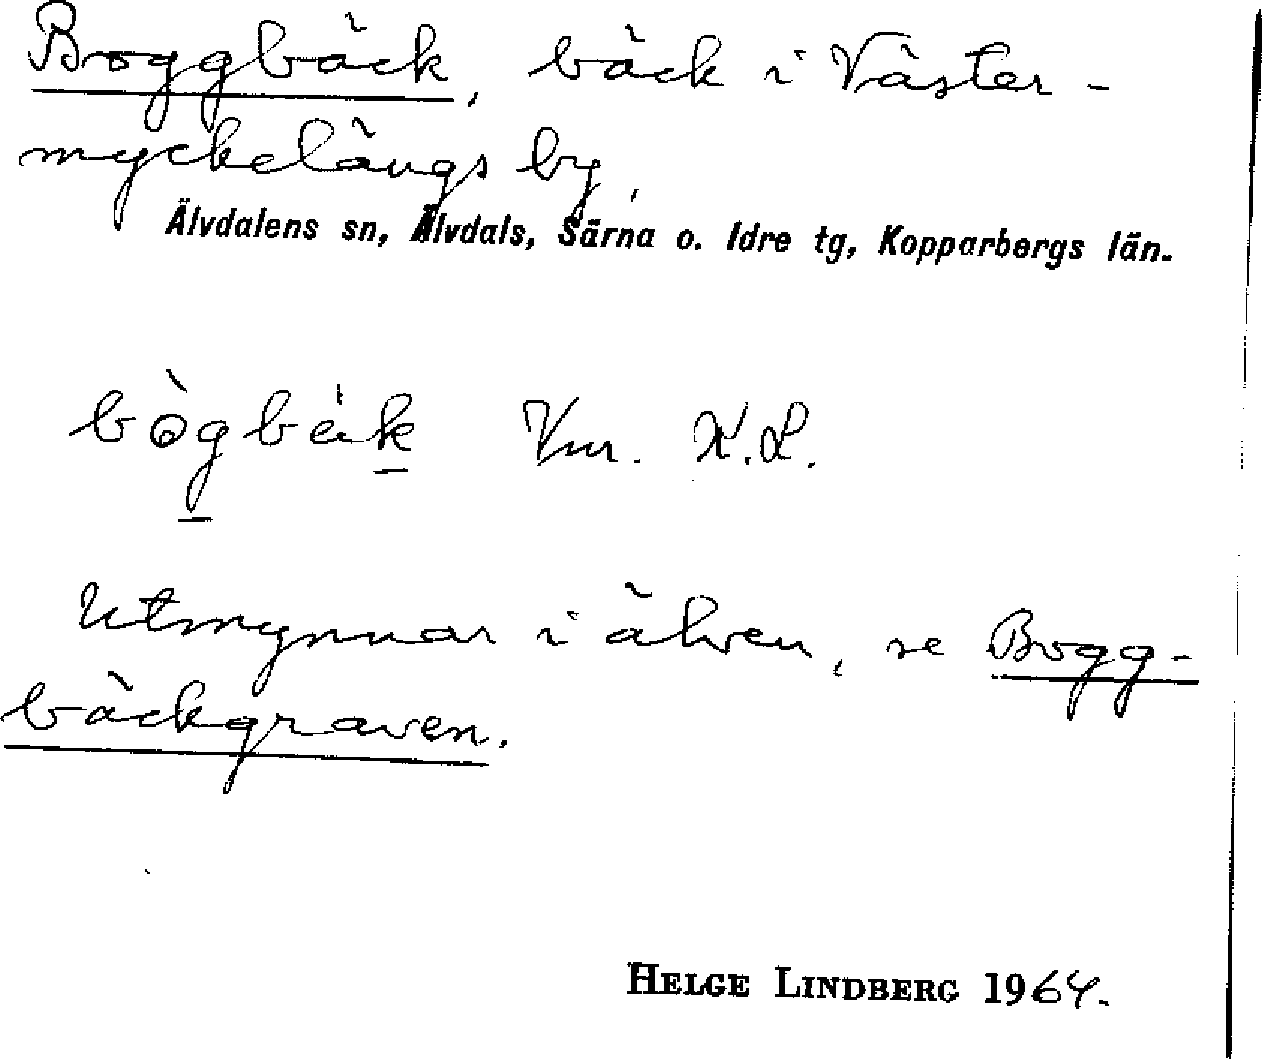 Boggbäck, bäck i Väster-
myckelängs by,
Älvdalens sn, Älvdals, Särna o. Idre tg, Kopparbergs län.
bògbäk Vm. K.L.
Utmynnar i älven, se Bogg-
bäckgraven.
HELGE LINDBERG 1964.